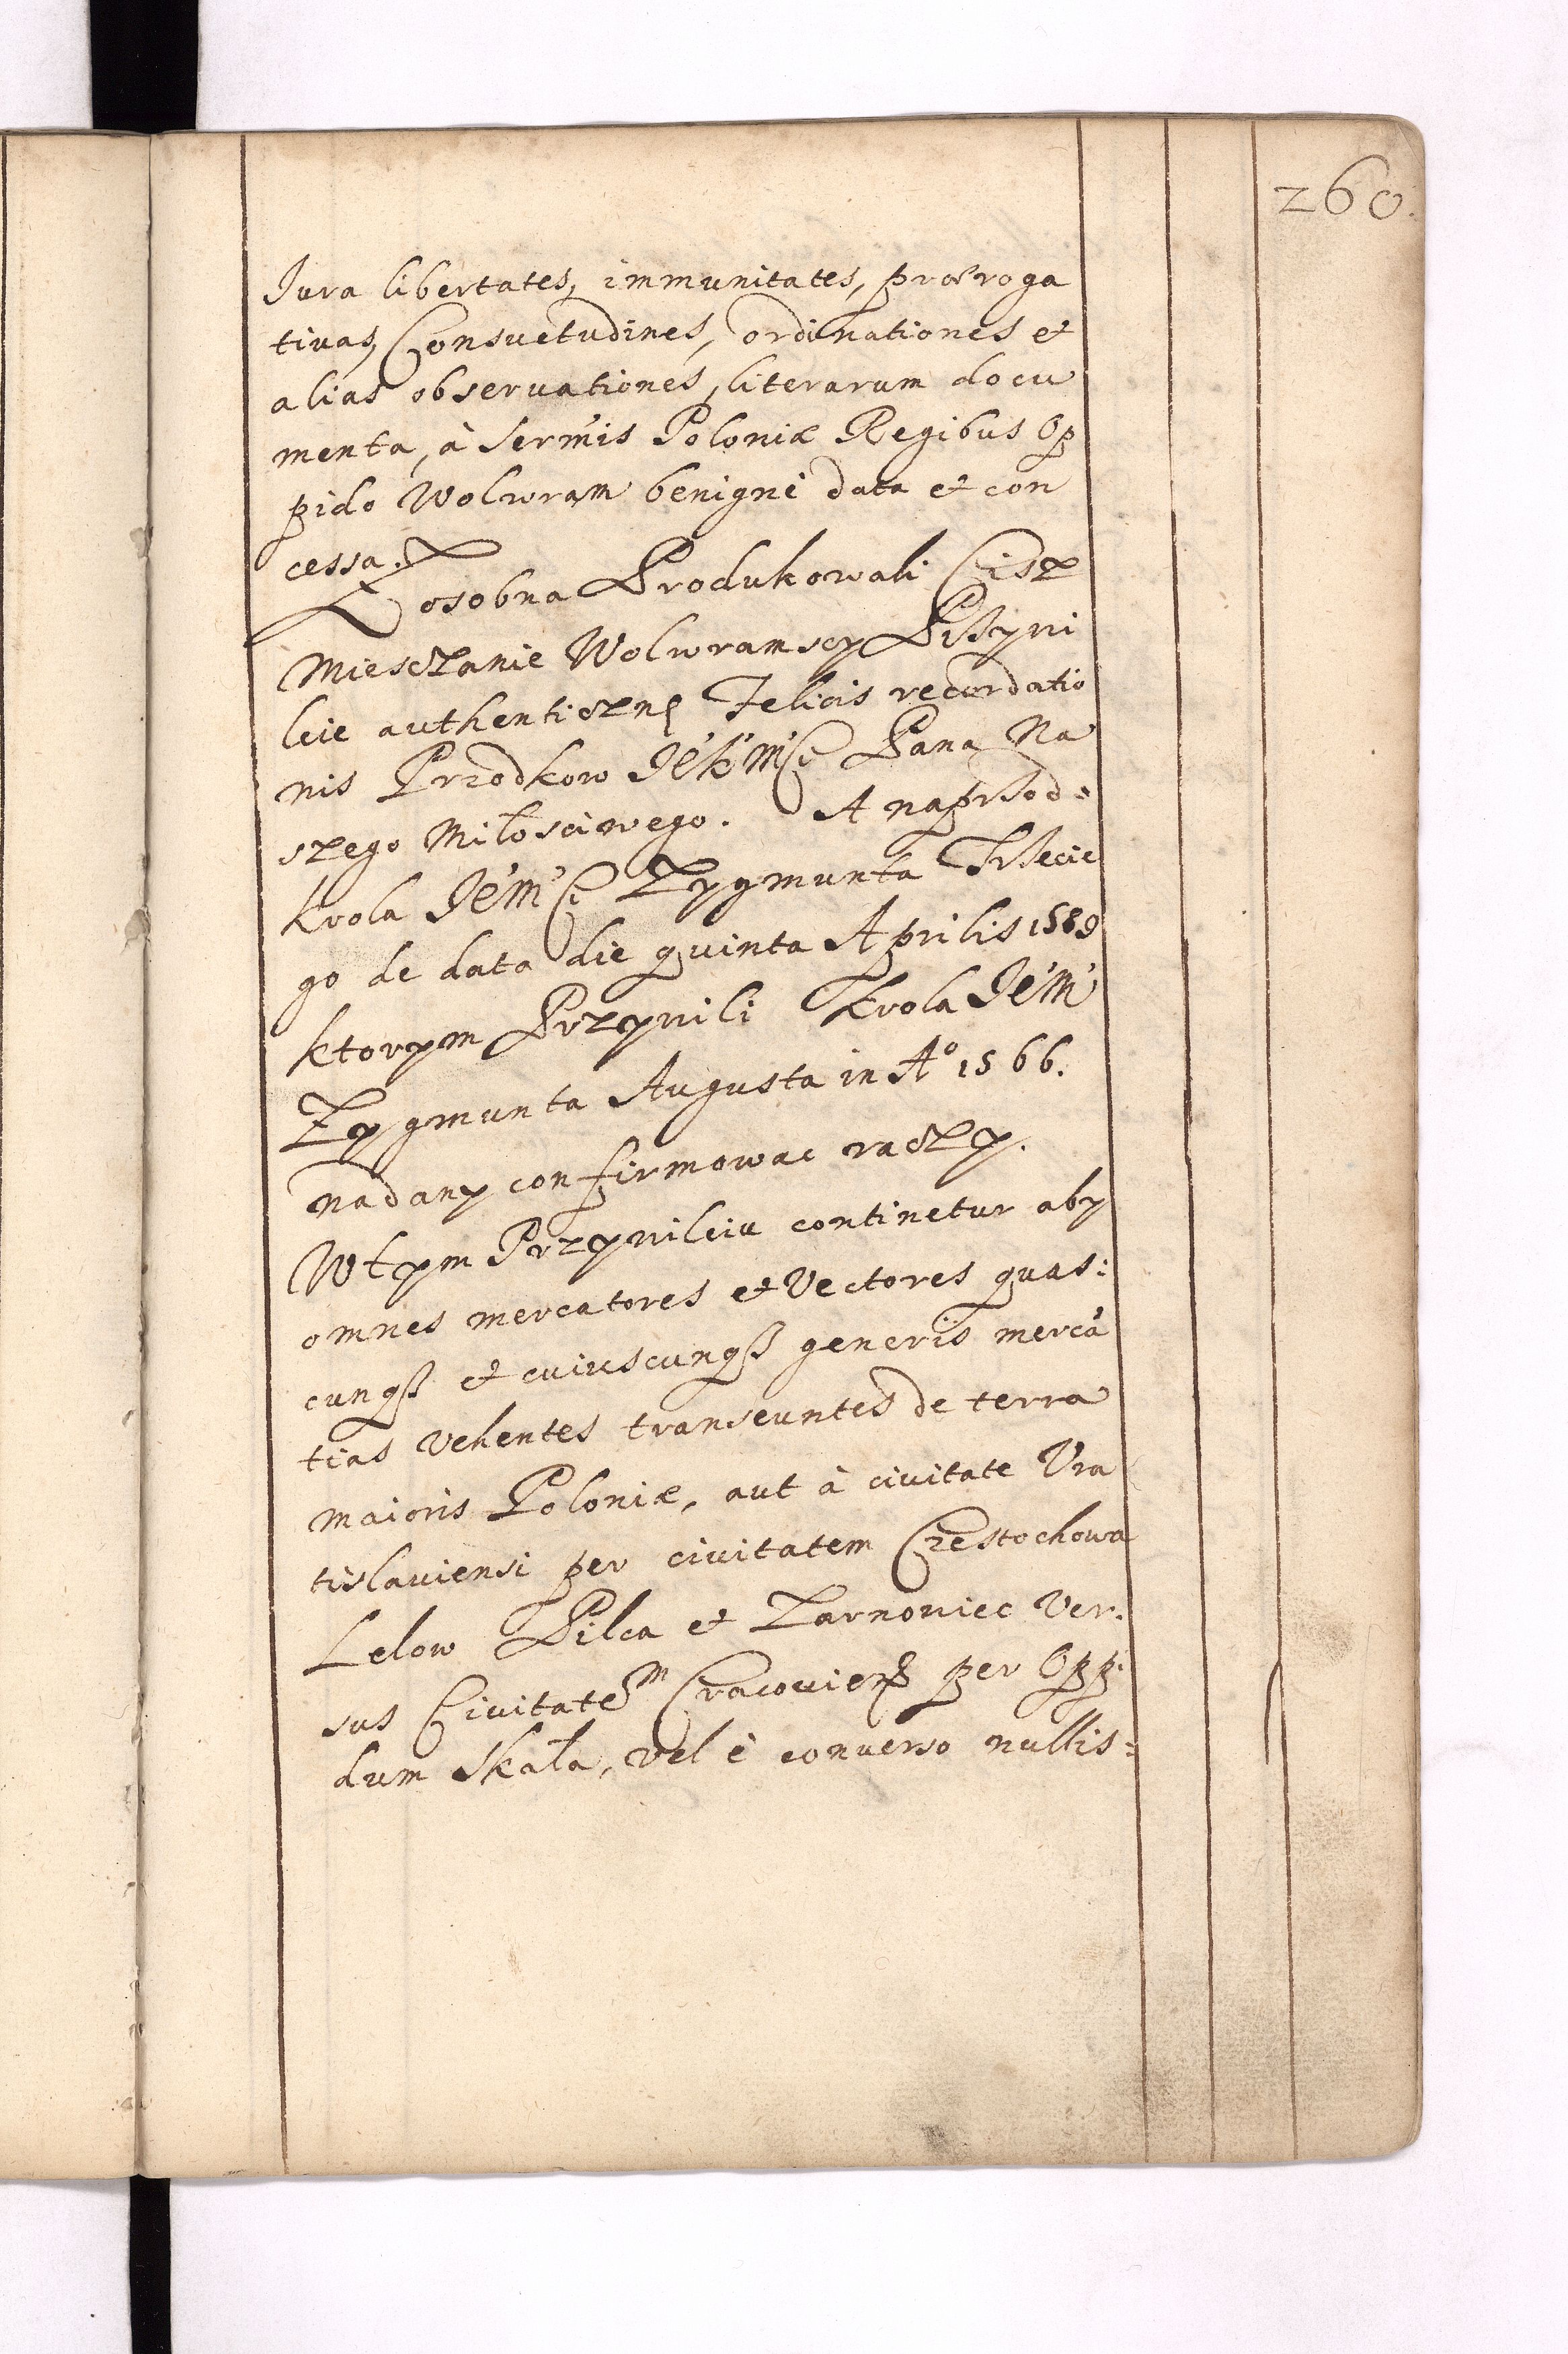 260.
Jura libertates, immunitates, præroga
tivas, Consvetudines, ordinationes et
alias observationes, literarum docu
menta, à Serm̃is Poloniæ Regibus Op
pido Wolwram benignè data et con
cessa.
Zosobna Produkowali Ciż
Miesczanie Wolwramscy Przywi
leie authenticzne Felicis recordatio
nis Przodkow Je͠K͠M͠Ci Pana Na
szego Miłosciwego. A naprzod:
Krola Je͠M͠Ci Zygmunta Trzecie
go de data die quinta Aprilis 1589
ktorym Przywili Krola Je͠M͠
Zygmunta Augusta in Aº 1566.
nadany confirmowac raczy.
W tym Przywileiu continetur aby
omnes mercatores et Vectores quas:
cunqꝫ et cuiuscunqꝫ generis mercā
tias vehentes transeuntes de terra
maioris Poloniæ, aut à civitate Vra
tislaviensi per civitatem Czestochowa
Lelow Pilca et Zarnowiec Ver.
sus Civitatem Cracovien̄ per Opp.
dum Skała, vel è converso nullis: